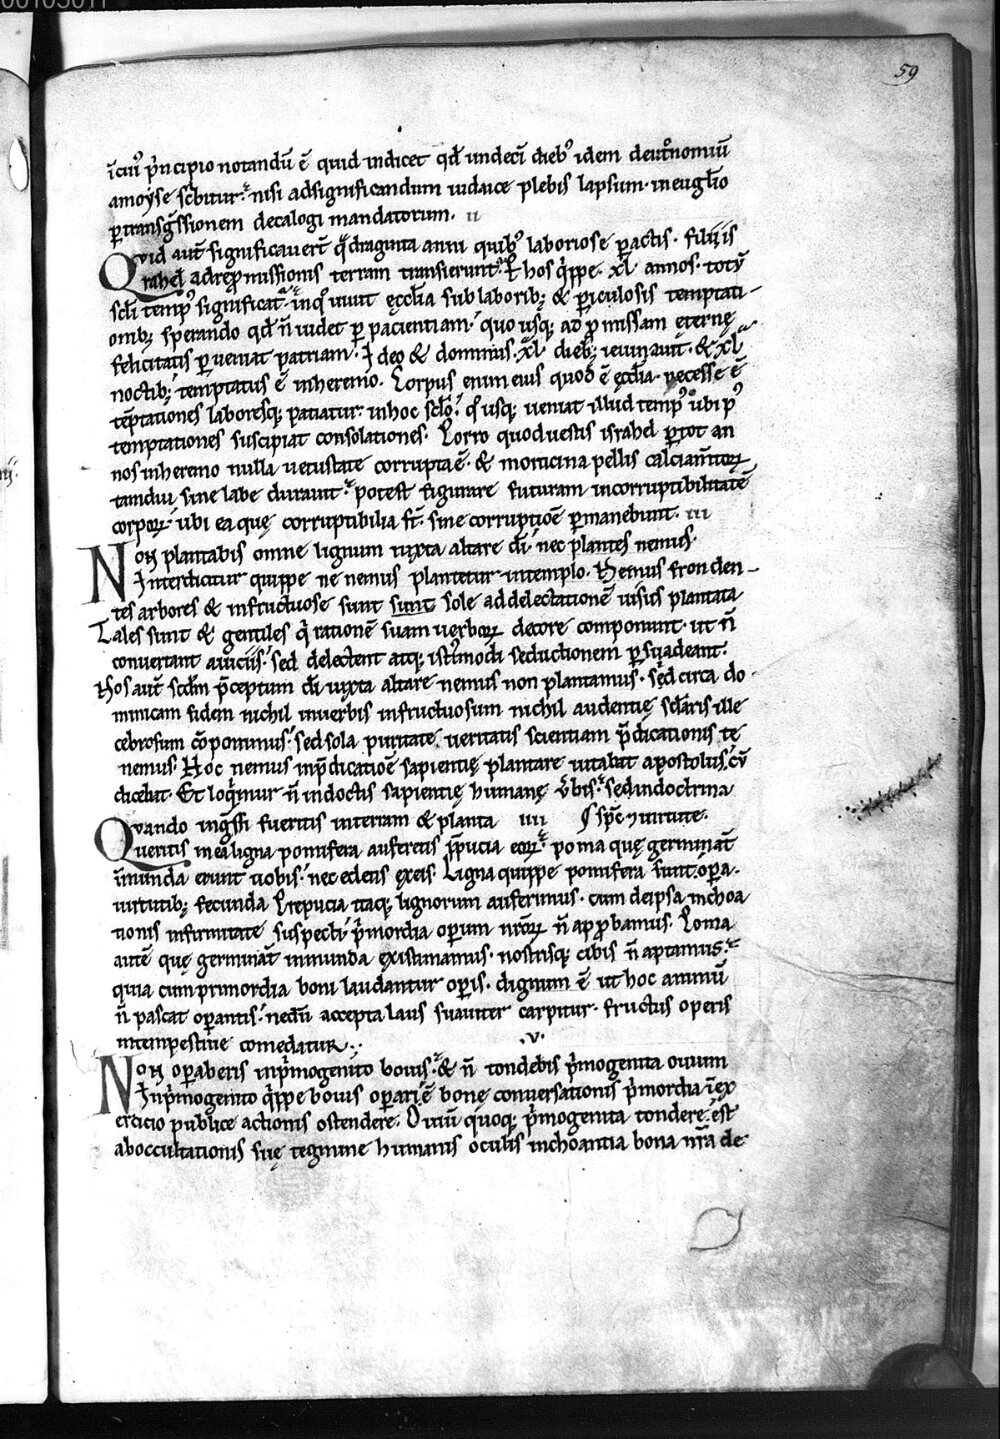 59
ī cuiꝰ p̄ncipio notandū ē quid indicet qđ undeci dieb; idem deut̄nomiū
amoyse sc̄bitur. nisi adsignificandum iudaice plebis lapsum. in eugl̄io
ꝑtransḡssionem decalogi mandatorum. ii
Qvid aut̄ significauert̄ q̄draginta anni quibꝰ laboriose ꝑactis. filii is
rahel adrep̄missionis terram transierunt. ꝑ hos q̄ppe. xl annos. totū
sc̄li tempꝰ significat̄. inq̊ uiuit ęccl̄ia sub laborib; & ꝑiculosis temptati-
onib; sperando qđ n̄ uidet ꝑ pacientiam. quo usq; ad ꝓmissam eternę
felicitatis ꝑueniat patriam. Ideo & dominus. xl dieb; ieiunauit. & xl
noctib; temptatus ē inheremo. Corpus enim eius quod ē ęccl̄ia. necesse ē
tēptationes laboresq; patiatur. inhoc sc̄lo. q̊ usq; ueniat illud tempꝰ ubi pꝰ
temptationes suscipiat consolationes. Porro quod uestis israhel ꝑ tot an
nos inheremo nulla uetustate corrupta ē. & morticina pellis calciam̄toꝝ
tandiu sine labe durauit. potest figurare futuram incorruptibilitatē
corpoꝝ. ubi ea quę corruptibilia st̄. sine corruptiōe ꝑmanebunt. iii
Non plantabis omne lignum iuxta altare dī. nec plantes nemus.
Interdicitur quippe ne nemus plantetur intemplo. Nemus fronden-
tes arbores & infructuose sunt sunt sole ad delectationē uisus plantata
Tales sunt & gentiles q̄ rationē suam uerboꝝ decore componunt. ut n̄
conuertant a uiciis. sed delectent atq; isti᷒modi seductionem ꝑsuadeant.
Nos aut̄ sc̄dm p̄ceptum dī iuxta altare nemus non plantamus. sed circa do-
minicam fidem nichil inuerbis infructuosum nichil audientię scl̄aris ille
cebrosum cōponimus. sed sola puritate ueritatis scientiam p̄dicationis te
nemus. Hoc nemus inp̄dicatiōe sapientię plantare uitabat apostolus. cū
dicebat. Et loq̄mur n̄ indoctis sapientię humanę v̄bis. sed indoctrina
Qvando inḡssi fueritis interram & planta iiii ¶ sp̄c ⁊ uirtute.
Ueritis inea ligna pomifera auferetis p̄pucia eoꝝ. poma quę germināt
īmunda erunt uobis. nec edetis ęxeis. Ligna quippe pomifera sunt. oꝑa
uirtutib; fecunda. Prepucia itaq; lignorum auferimus. cum deipsa inchoa
tionis infirmitate suspecti p̄mordia operum nr̄oꝝ n̄ approbamus. Poma
autē quę germināt inmunda existimamus. nostrisq; cibis n̄ aptamus.
quia cum primordia boni laudantur oꝑis. dignum ē ut hoc animū
n̄ pascat oꝑantis. nedū accepta laus suauiter carpitur. fructus operis
intempestiue comedatur. v.
Non oꝑaberis inp̄mogenito bouis. & n̄ tondebis p̄mogenita ouium
Inp̄mogenito q̄ppe bouis oꝑari ē bonę conuersationis p̄mordia ī ex
ercicio publice actionis ostendere. Ouiū quoq; p̄mogenita tondere. est
aboccultationis suę tegmine humanis oculis inchoantia bona nr̄a de